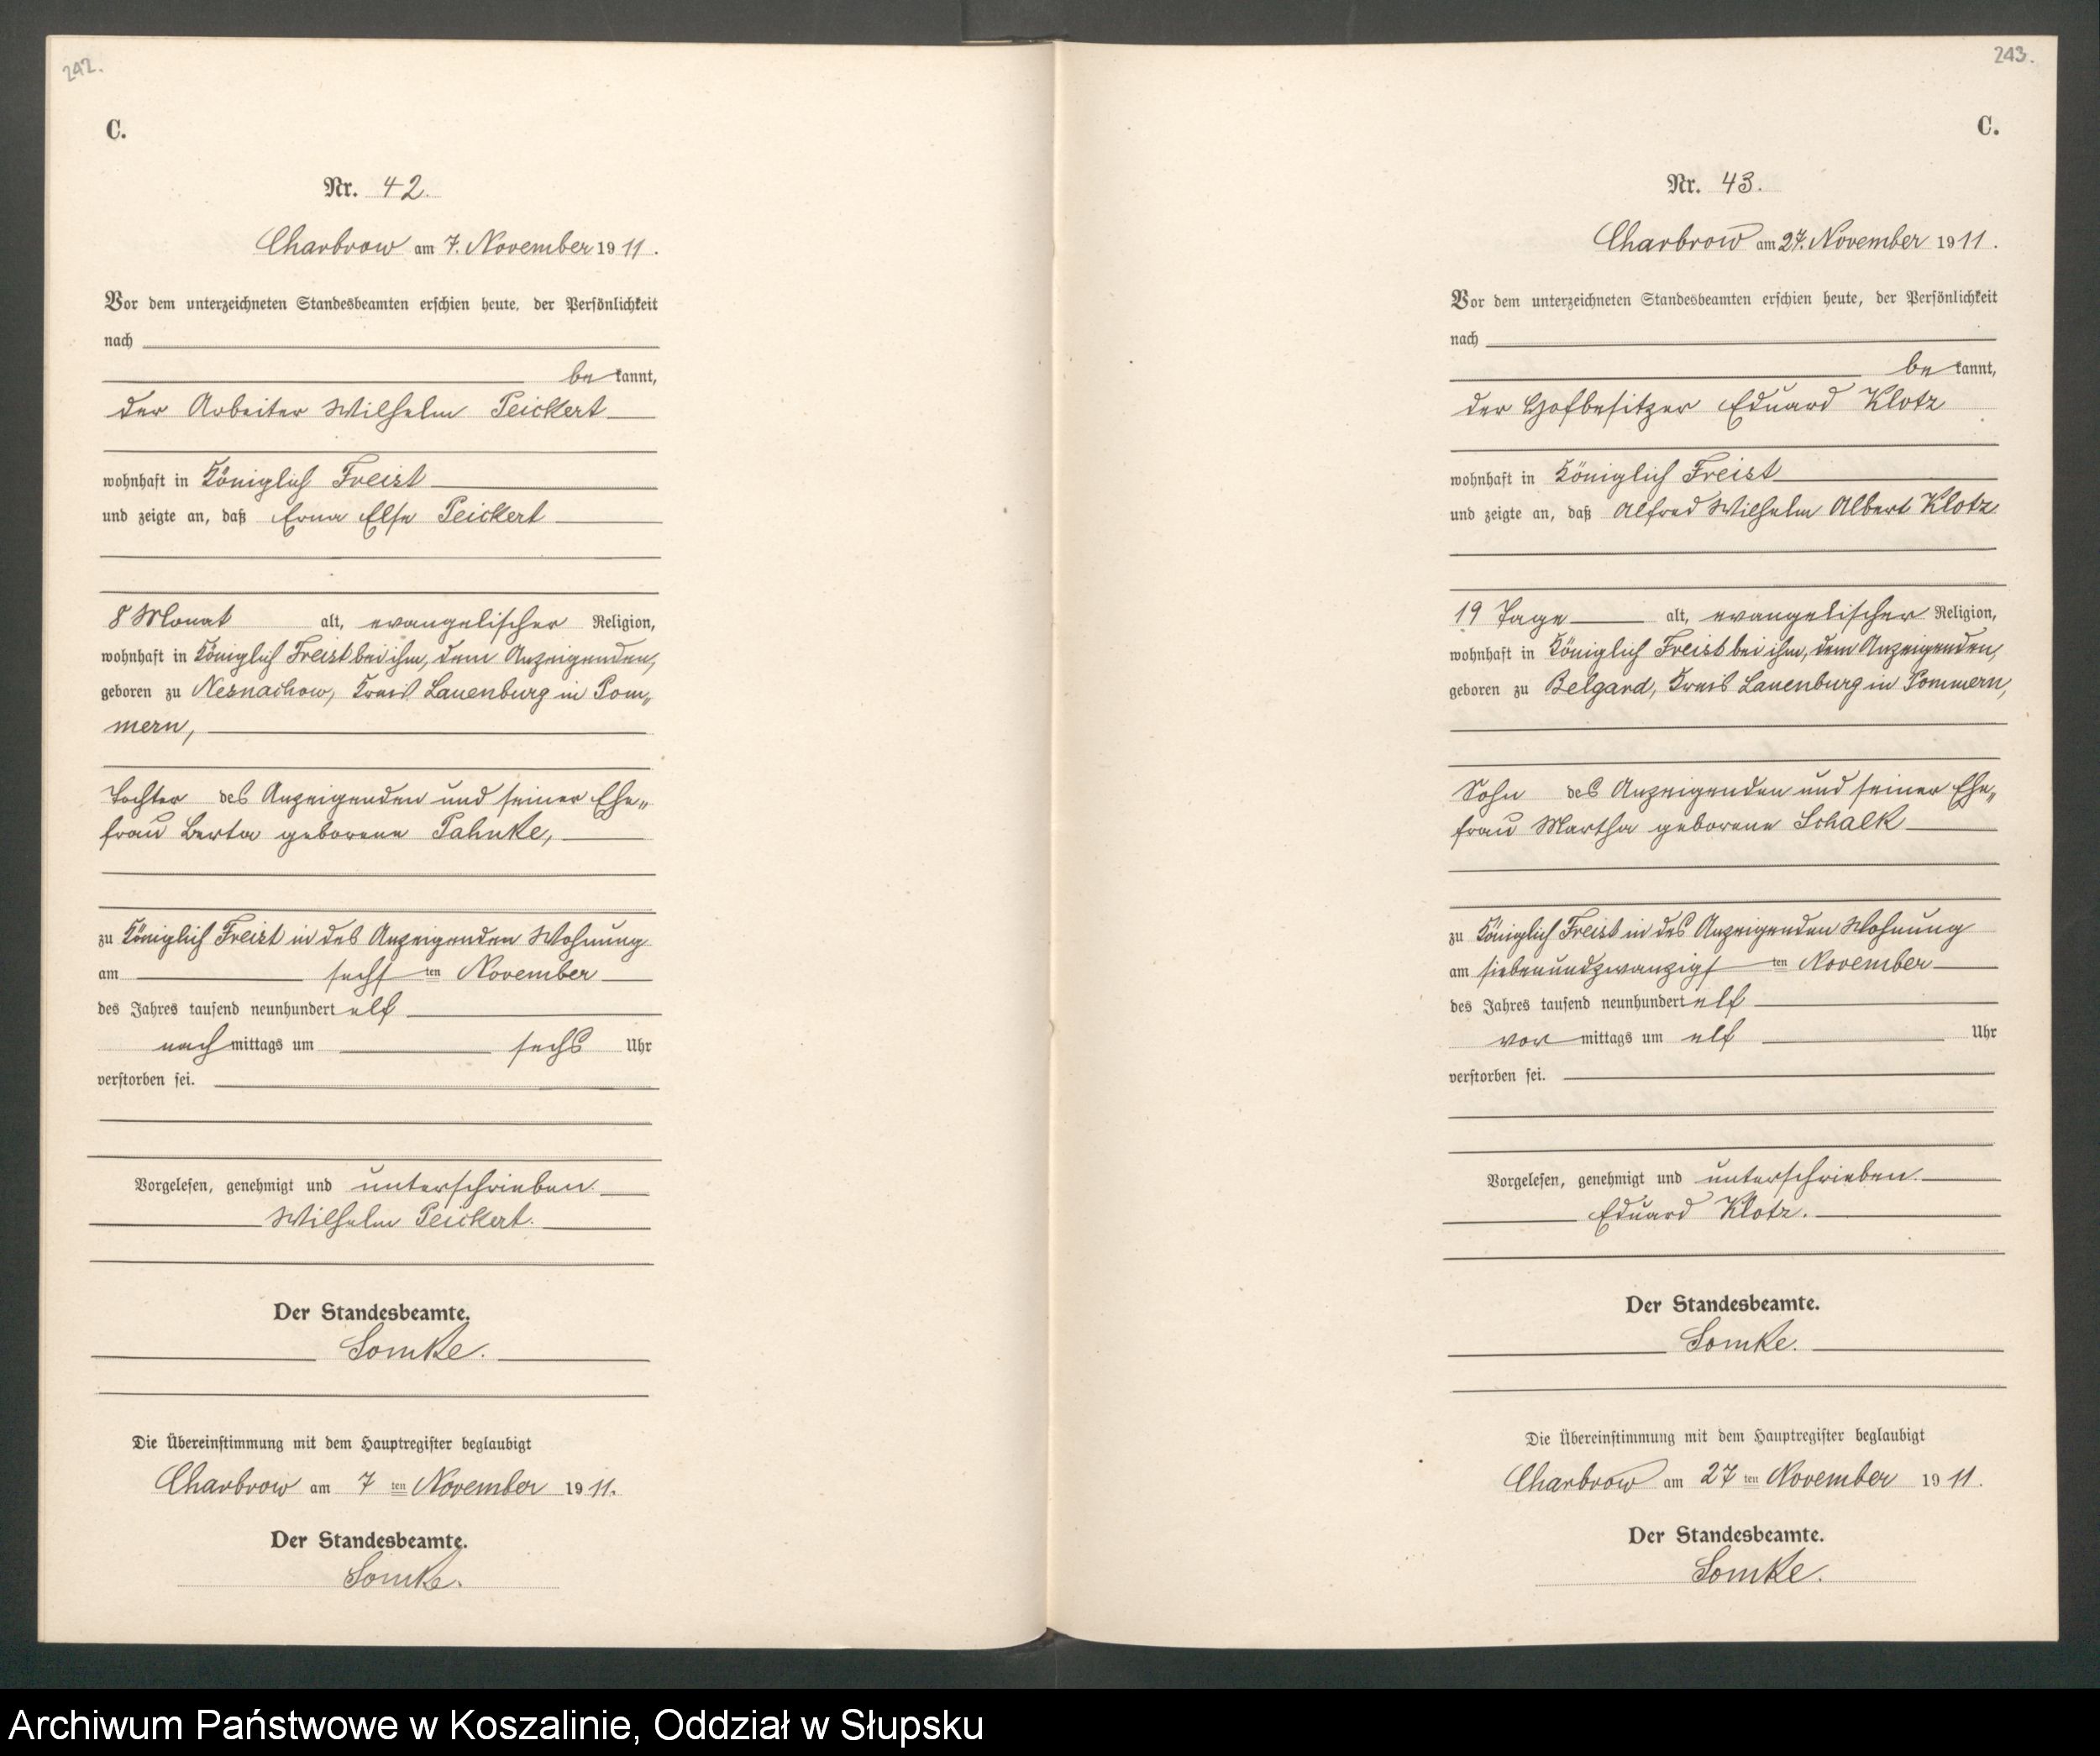 242.
C.
Nr. 42.
Charbrow am 7. November 1911.
Vor dem unterzeichneten Standesbeamten erschien heute, der Persönlichkeit
nach
be kannt,
der Arbeiter Wilhelm Peickert
wohnhaft in Königlich Freist
und zeigte an, daß Erna Else Peickert
8 Monat alt, evangelischer Religion,
wohnhaft in Königlich Freist bei ihm, dem Anzeigenden,
geboren zu Nesnachow, Kreis Lauenburg in Pom„
mern,
Tochter des Anzeigenden und seiner Ehe„
frau Berta geborene Pahnke,
zu Königlich Freist in des Anzeigenden Wohnung
am sechs ten November
des Jahres tausend neunhundert elf
nach mittags um sechs Uhr
verstorben sei.
Vorgelesen, genehmigt und unterschrieben.
Wilhelm Peickert.
Der Standesbeamte.
Somke.
Die Übereinstimmung mit dem Hauptregister beglaubigt
Charbrow am 7 ten November 1911.
Der Standesbeamte.
Somke.
243.
C.
Nr. 43.
Charbrow am 27. November 1911.
Vor dem unterzeichneten Standesbeamten erschien heute, der Persönlichkeit
nach
be kannt,
der Hofbesitzer Eduard Klotz
wohnhaft in Königlich Freist
und zeigte an, daß Alfred Wilhelm Albert Klotz
19 Tage alt, evangelischer Religion,
wohnhaft in Königlich Freist bei ihm, dem Anzeigenden,
geboren zu Belgard, Kreis Lauenburg in Pommern,
Sohn des Anzeigenden und seiner Ehe„
frau Martha geborene Schalk
zu Königlich Freist in des Anzeigenden Wohnung
am siebenundzwanzigs ten November
des Jahres tausend neunhundert elf
vor mittags um elf Uhr
verstorben sei.
Vorgelesen, genehmigt und unterschrieben.
Eduard Klotz.
Der Standesbeamte.
Somke.
Die Übereinstimmung mit dem Hauptregister beglaubigt
Charbrow am 27 ten November 1911.
Der Standesbeamte.
Somke.
Archiwum Państwowe w Koszalinie, Oddział w Słupsku